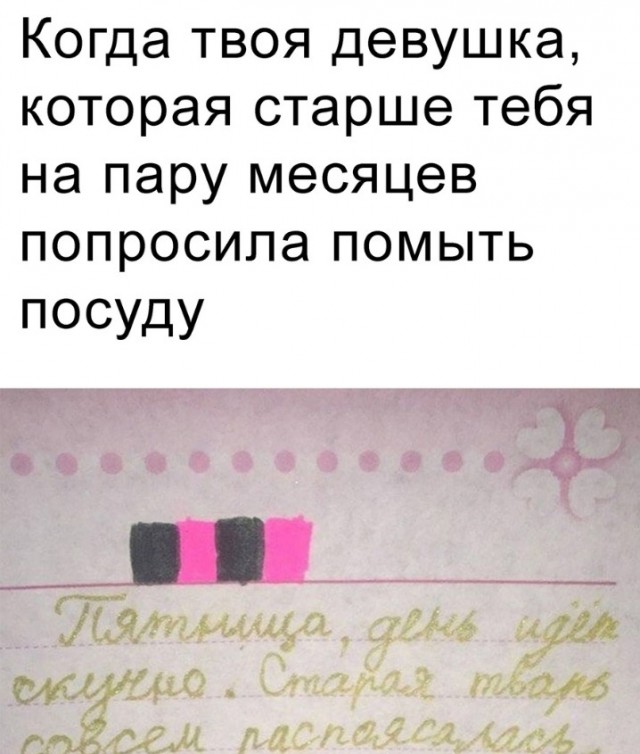 Когда твоя девушка,
которая старше тебя
на пару месяцев
попросила помыть
посуду
Пятница, день идёт
скучно. Старая тварь
совсем распоясалась